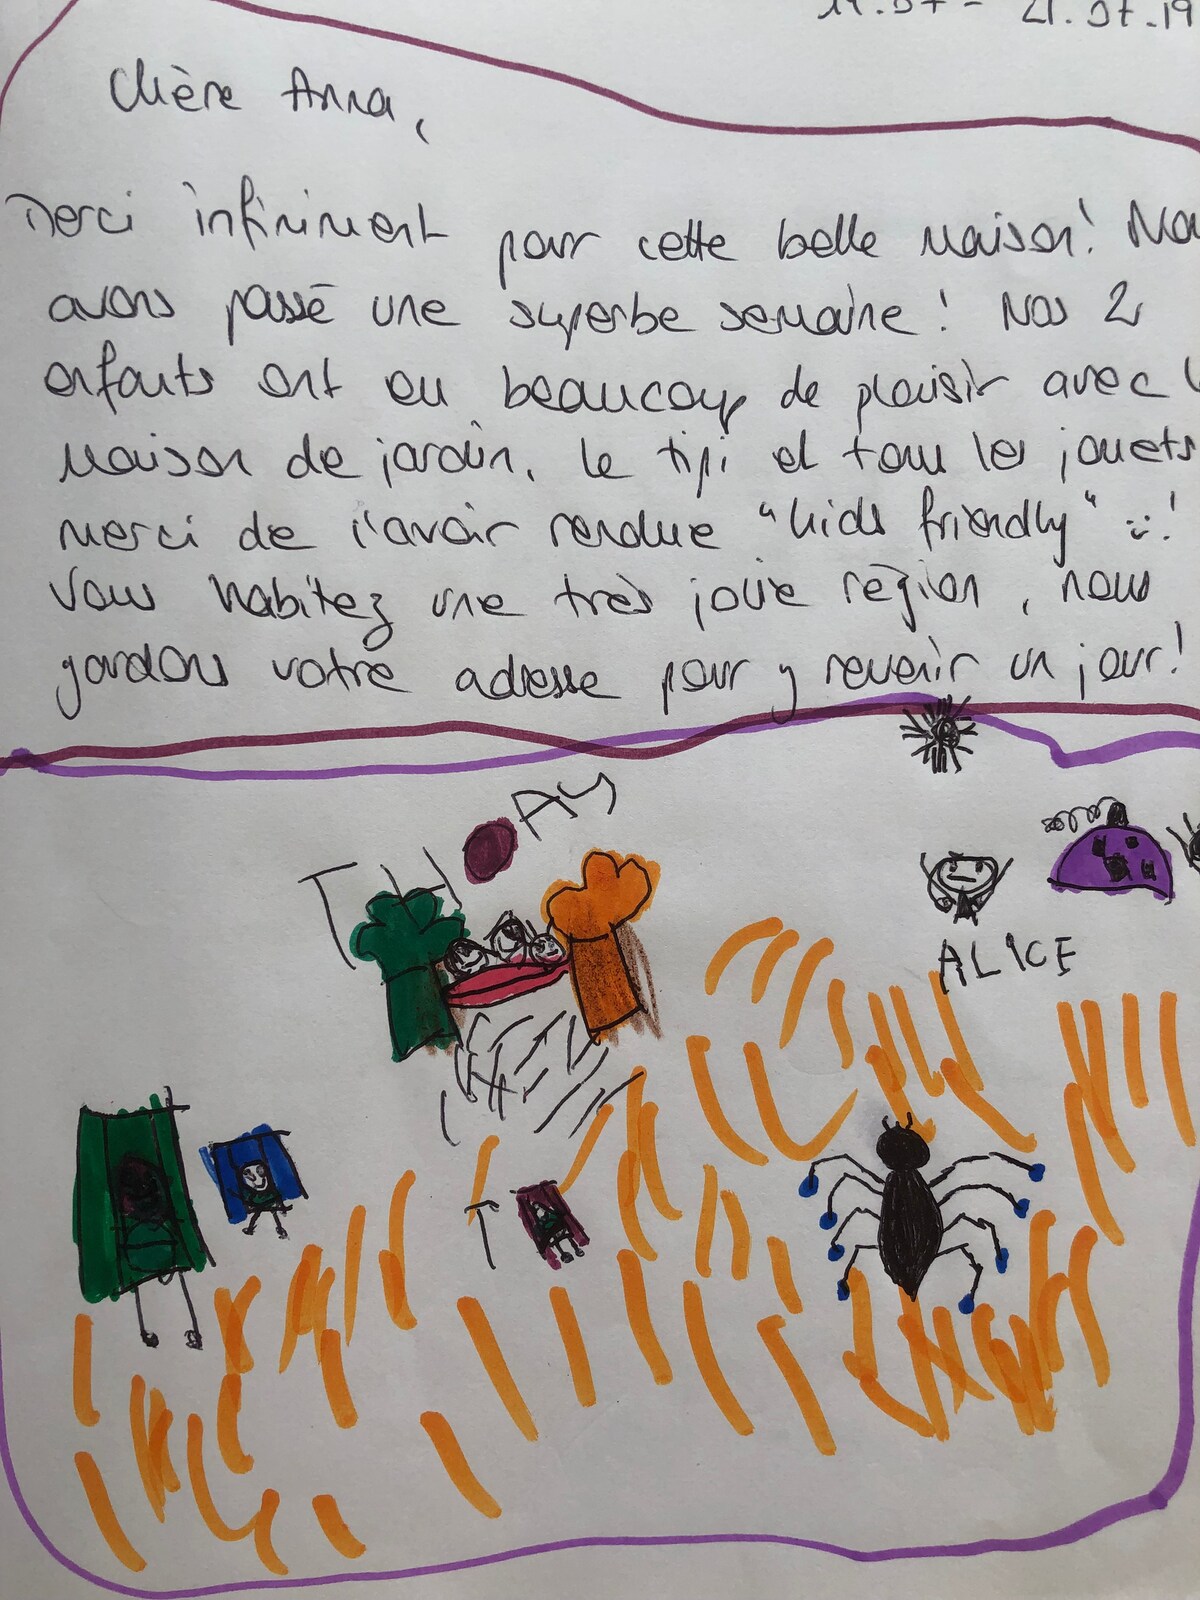 21.07.19
Chère Anna,
Merci infiniment pour cette belle maison! Nou
avons passé une superbe semaine! Nos 2
enfants ont eu beaucoup de plaisir avec l
maison de jardin, le tipi et tous les jouets
merci de l'avoir rendue "kids friendly" :-!
Vous habitez une très jolie région, nous
gardons votre adresse pour y revenir un jour!
ALICE